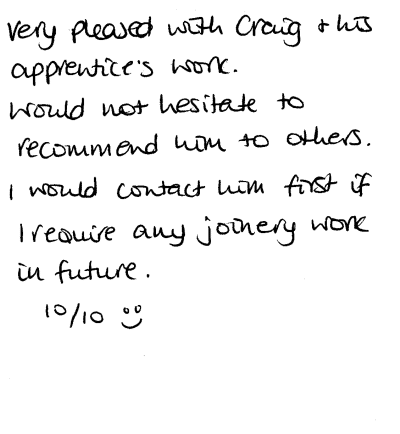 Very pleased with Craig + his
apprentice's work.
Would not hesitate to
recommend him to others.
I would contact him first if
I require any joinery work
in future.
10/10 :)